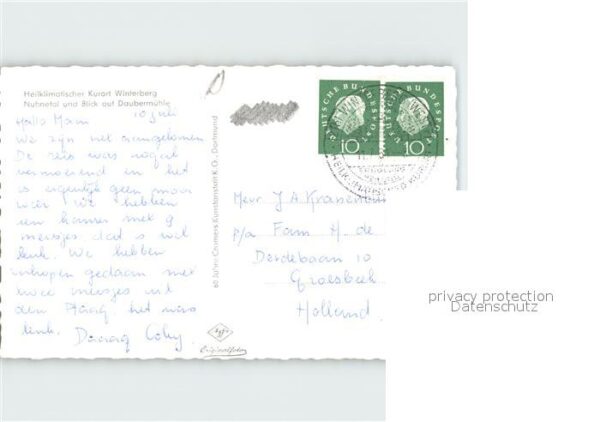 Heilklimatischer Kurort Winterberg
Nuhnetal und Blick auf Daubermühle
10 juli
Hallo Mam
We zijn net aangekomen
De reis was nogal
vermoeiend en het
is eigenlijk geen mooi
weer we hebben
een kamer met 9
meisjes dat is wel
leuk. We hebben
inkopen gedaan met
twee meisjes uit
den het was
leuk. Daaag Coby
60 Jahre Cramers Kunstanstalt K.G., Dortmund
Originalfoto
DEUTSCHE BUNDESPOST
10
DEUTSCHE BUNDESPOST
10
HEILKLIMATISCHER KURORT
Mevr J A
p/a Fam de
Derdebaan 10
Groesbeek
Holland
privacy protection
Datenschutz